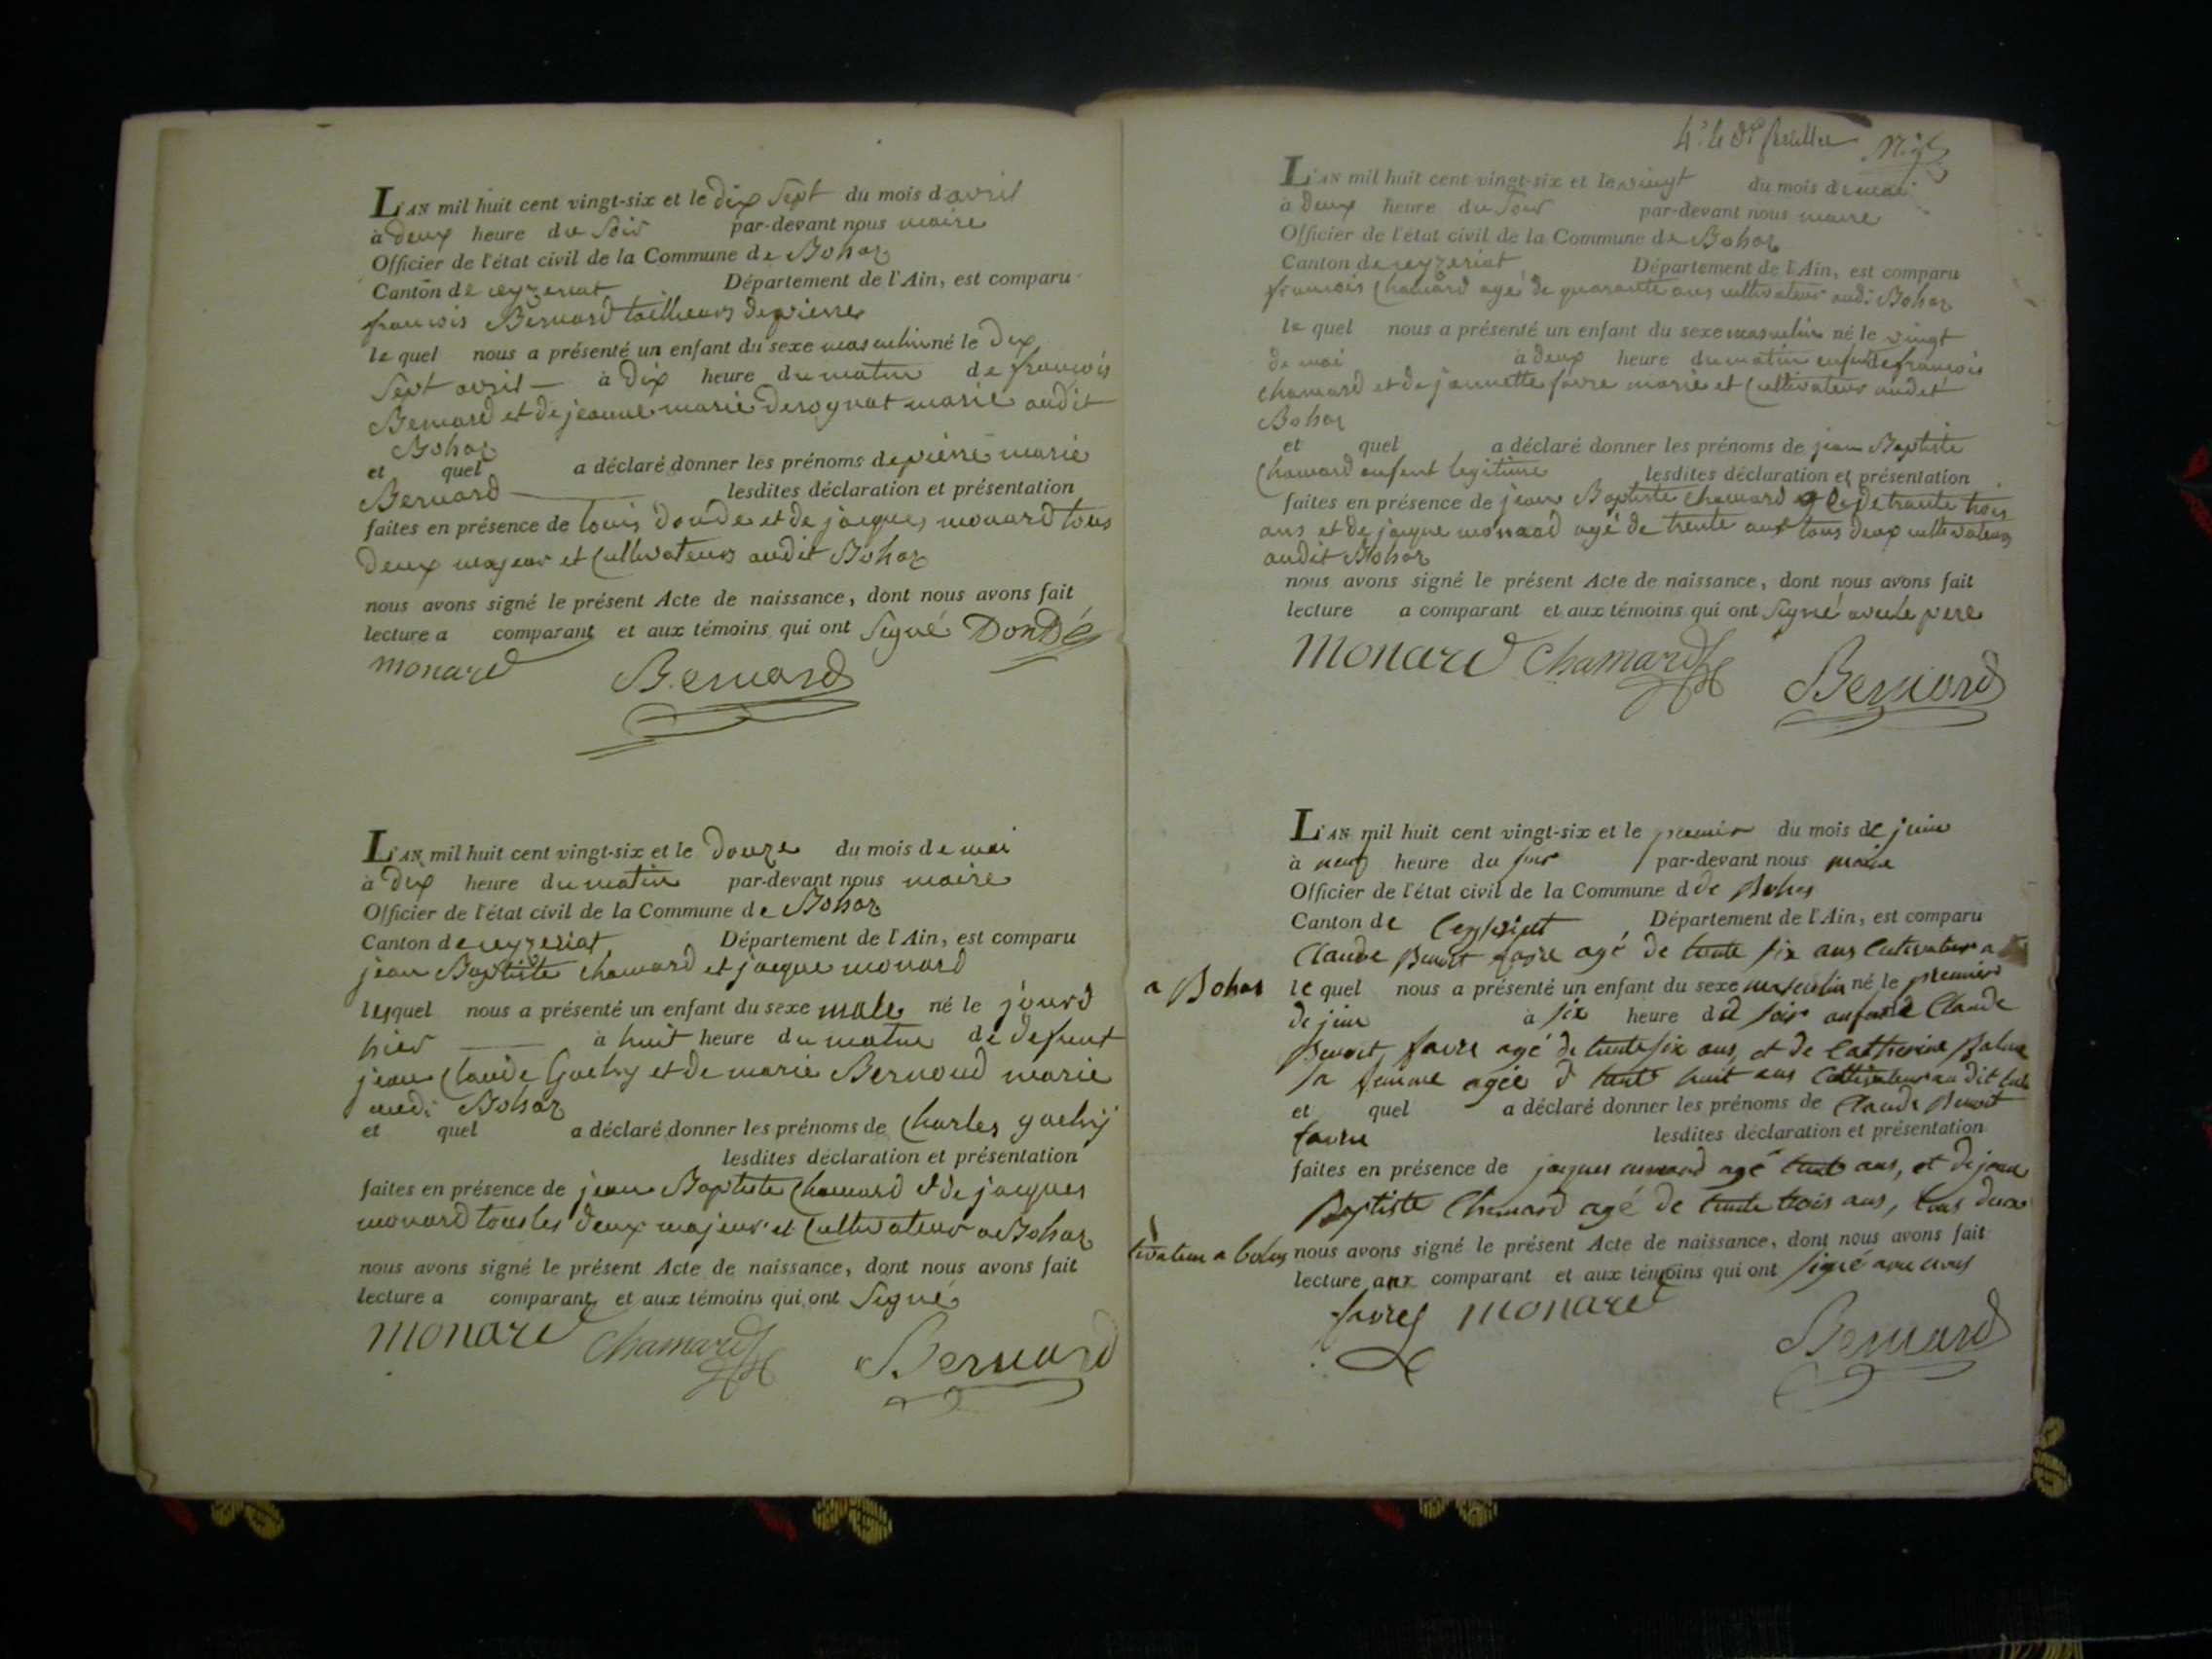 L'AN mil huit cent vingt-six et le dix sept du mois d avril
à deux heure du soir par-devant nous maire
Officier de l'état civil de la Commune de Bohaz
Canton de ceyzeriat Département de l'Ain, est comparu
francois Bernard tailleurs de pierre
le quel nous a présenté un enfant du sexe masculin né le dix
sept avril — à dix heure du matin de francois
Bernard et de jeanne marie derognat marié audit
Bohaz
et quel a déclaré donner les prénoms de pierre marie
Bernard lesdites déclaration et présentation
faites en présence de louis donde et de jacques monard tous
deux majeur et cultivateurs audit Bohaz
nous avons signé le présent Acte de naissance, dont nous avons fait
lecture a comparant et aux témoins qui ont signé DonDé
monard Bernard
L'AN mil huit cent vingt-six et le douze du mois de mai
à dix heure du matin par-devant nous maire
Officier de l'état civil de la Commune de Bohaz
Canton de ceyzeriat Département de l'Ain, est comparu
jean Baptiste chamard et jacque monard
lesquel nous a présenté un enfant du sexe male né le jourd
hier — à huit heure du matin de defunt
jean claude et de marie Bernoud marie
audi Bohaz
et quel a déclaré donner les prénoms de charles
lesdites déclaration et présentation
faites en présence de jean Baptiste chamard et de jacques
monard tous les deux majeur et cultivateur a Bohaz
nous avons signé le présent Acte de naissance, dont nous avons fait
lecture a comparant et aux témoins qui ont signé
monard chamard Bernard
L'AN mil huit cent vingt-six et le vingt du mois de mai
à deux heure du soir par-devant nous maire
Officier de l'état civil de la Commune de Bohaz
Canton de ceyzeriat Département de l'Ain, est comparu
francois chamard agé de quarante ans cultivateur audi Bohaz
le quel nous a présenté un enfant du sexe masculin né le vingt
de mai à deux heure du matin enfant de francois
chamard et de jannette favre marié et cultivateur audit
Bohaz
et quel a déclaré donner les prénoms de jean Baptiste
chamard enfant legitime lesdites déclaration et présentation
faites en présence de jean Baptiste chamard agé de trante trois
ans et de jacque monard agé de trente ans tous deux cultivateurs
audit Bohaz
nous avons signé le présent Acte de naissance, dont nous avons fait
lecture a comparant et aux témoins qui ont signé avec le pere
monard chamard Bernard
L'AN mil huit cent vingt-six et le premier du mois de juin
à neuf heure du soir par-devant nous maire
Officier de l'état civil de la Commune d de Bohas
Canton de Département de l'Ain, est comparu
Claude Benoit favre agé de trente six ans cultivateur a
a Bohas le quel nous a présenté un enfant du sexe masculin né le premier
de juin à six heure du soir enfant de Claude
Benoit favre agé de trente six ans, et de Catherine
sa femme agée d trente huit ans cultivateur au dit
et quel a déclaré donner les prénoms de Claude Benoit
favre lesdites déclaration et présentation
faites en présence de jacques monard agé trente ans, et de jean
Baptiste Chamard agé de trente trois ans, tous deux
tivateur a bohas nous avons signé le présent Acte de naissance, dont nous avons fait
lecture aux comparant et aux témoins qui ont signé avec nous
favre monard
Bernard